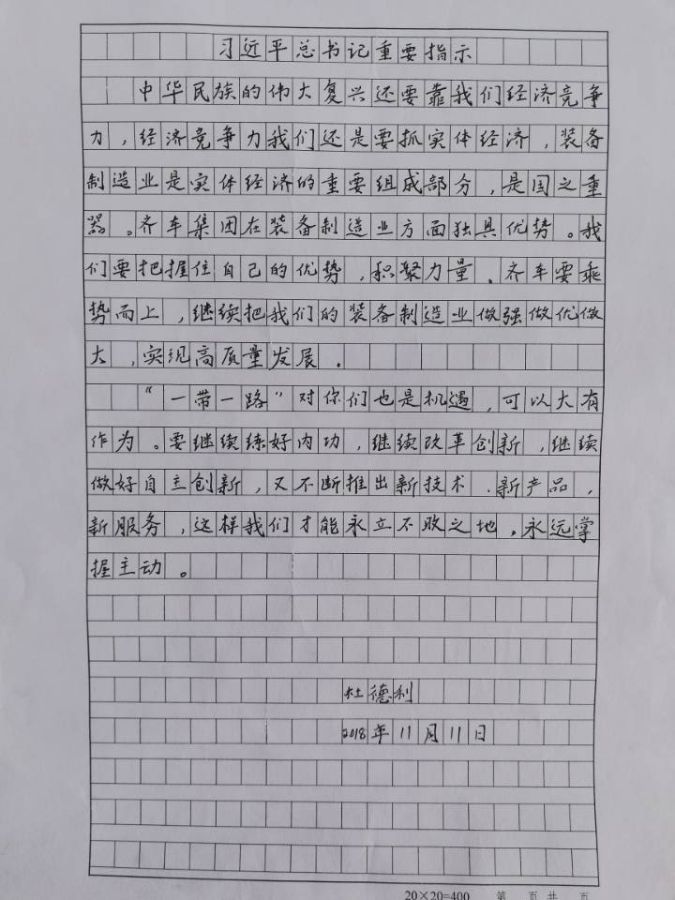 习近平总书记重要指示
中华民族的伟大复兴还要靠我们经济竞争
力，经济竞争力我们还是要抓实体经济，装备
制造业是实体经济的重要组成部分，是国之重
器。齐车集团在装备制造业方面独具优势。我
们要把握住自己的优势，积聚力量、齐车要乘
势而上，继续把我们的装备制造业做强做优做
大，实现高质量发展。
“一带一路”对你们也是机遇，可以大有
作为。要继续练好内功，继续改革创新，继续
做好自主创新，又不断推出新技术、新产品、
新服务，这样我们才能永立不败之地，永远掌
握主动。
杜德利
2018年11月11日
20×20=400 第 页 共 页